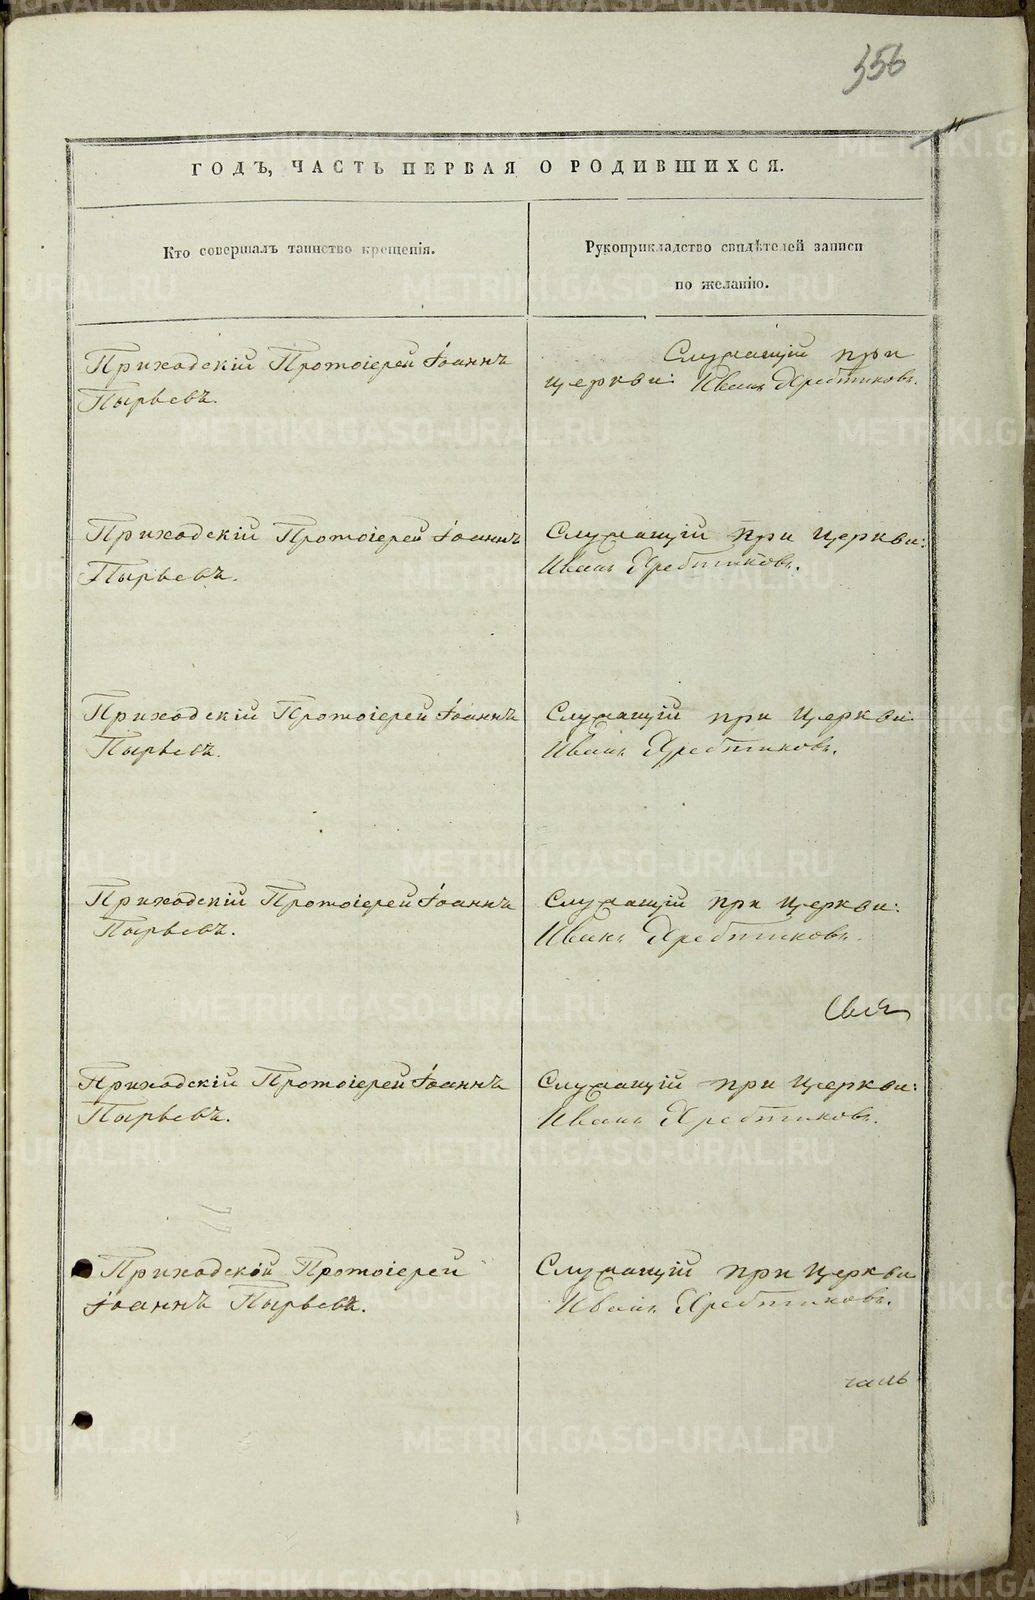 356
11
ГОДЪ, ЧАСТЬ ПЕРВАЯ О РОДИВШИХСЯ.
Кто совершалъ таинство крещенія.
Рукоприкладство свидѣтелей записи
по желанію.
Приходскій Протоіерей Іоаннъ
Пырьевъ.
Служащій при
церкви: Иванъ Хребтиковъ.
Приходскій Протоіерей Іоаннъ
Пырьевъ.
Служащій при церкви:
Иванъ Хребтиковъ.
Приходскій Протоіерей Іоаннъ
Пырьевъ.
Служащій при церкви:
Иванъ Хребтиковъ.
Приходскій Протоіерей Іоаннъ
Пырьевъ.
Служащій при церкви:
Иванъ Хребтиковъ.
Приходскій Протоіерей Іоаннъ
Пырьевъ.
Служащій при церкви:
Иванъ Хребтиковъ.
Приходскій Протоіерей
Іоаннъ Пырьевъ.
Служащій при церкви
Иванъ Хребтиковъ.
METRIKI.GASO-URAL.RU